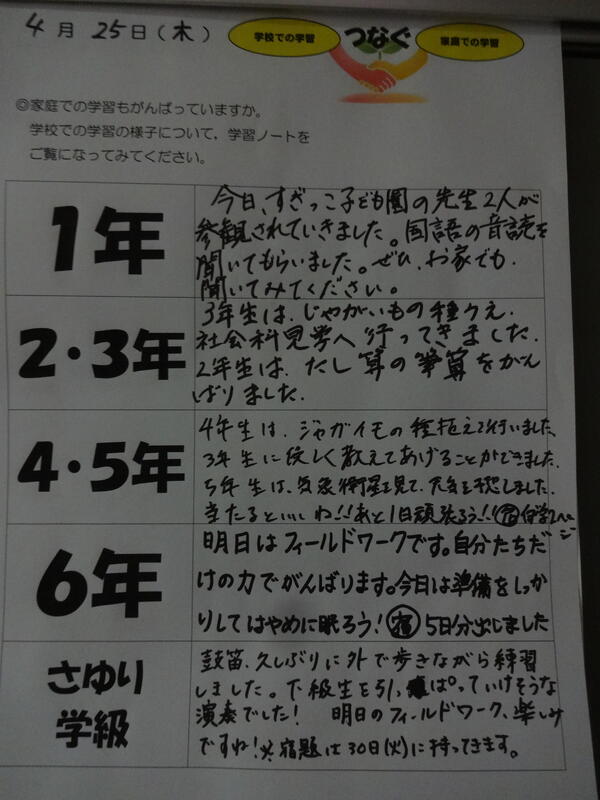 4月25日(木)
学校での学習
つなぐ
家庭での学習
◎家庭での学習もがんばっていますか。
学校での学習の様子について、学習ノートを
ご覧になってみてください。
1年
今日、すぎっこ子ども園の先生2人が
参観されていきました。国語の音読を
聞いてもらいました。ぜひ、お家でも
聞いてみてください。
2・3年
3年生は、じゃがいもの種うえ、
社会科見学へ行ってきました。
2年生は、たし算の筆算をがん
ばりました。
4・5年
4年生は、ジャガイモの種植えを行いました。
3年生に優しく教えてあげることができました。
5年生は、気象衛星を見て、天気を予想しました。
当たるといいね!!あと1日頑張ろう!!宿自学2ページ
6年
明日はフィールドワークです。自分たちだ
けの力でがんばります。今日は準備をしっか
りしてはやめに眠ろう!宿5日分出しました
さゆり
学級
鼓笛、久しぶりに外で歩きながら練習
しました。下級生を引っぱっていけそうな
演奏でした! 明日のフィールドワーク、楽しみ
ですね!※宿題は30日(火)に持ってきます。